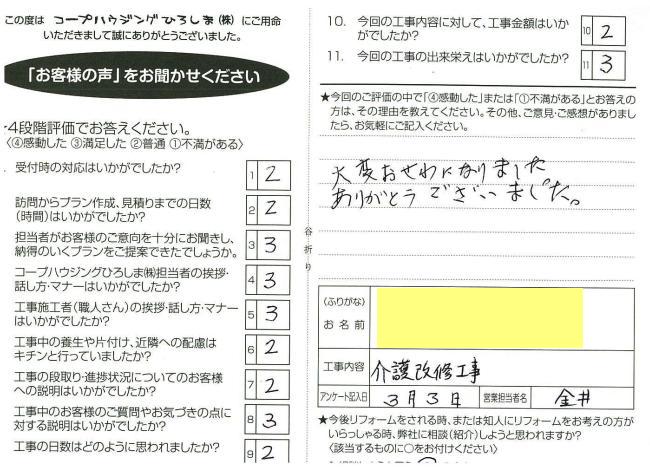 この度は コープハウジングひろしま(株) にご用命
いただきまして誠にありがとうございました。
「お客様の声」をお聞かせください
4段階評価でお答えください。
〈④感動した ③満足した ②普通 ①不満がある〉
受付時の対応はいかがでしたか? 1 2
訪問からプラン作成、見積りまでの日数
(時間)はいかがでしたか? 2 2
担当者がお客様のご意向を十分にお聞きし、
納得のいくプランをご提案できたでしょうか。 3 3
コープハウジングひろしま㈱担当者の挨拶・
話し方・マナーはいかがでしたか? 4 3
工事施工者(職人さん)の挨拶・話し方・マナー
はいかがでしたか? 5 3
工事中の養生や片付け、近隣への配慮は
キチンと行っていましたか? 6 2
工事の段取り・進捗状況についてのお客様
への説明はいかがでしたか? 7 2
工事中のお客様のご質問やお気づきの点に
対する説明はいかがでしたか? 8 3
工事の日数はどのように思われましたか? 9 2
谷折り
10. 今回の工事内容に対して、工事金額はいか
がでしたか? 10 2
11. 今回の工事の出来栄えはいかがでしたか? 11 3
★今回のご評価の中で「④感動した」または「①不満がある」とお答えの
方は、その理由を教えてください。その他、ご意見・ご感想がありまし
たら、お気軽にご記入ください。
大変おせわになりました
ありがとうございました。
(ふりがな)
お名前
工事内容 介護改修工事
アンケート記入日 3月3日 営業担当者名 金井
★今後リフォームをされる時、または知人にリフォームをお考えの方が
いらっしゃる時、弊社に相談(紹介)しようと思われますか?
〈該当するものに○をお付けください〉